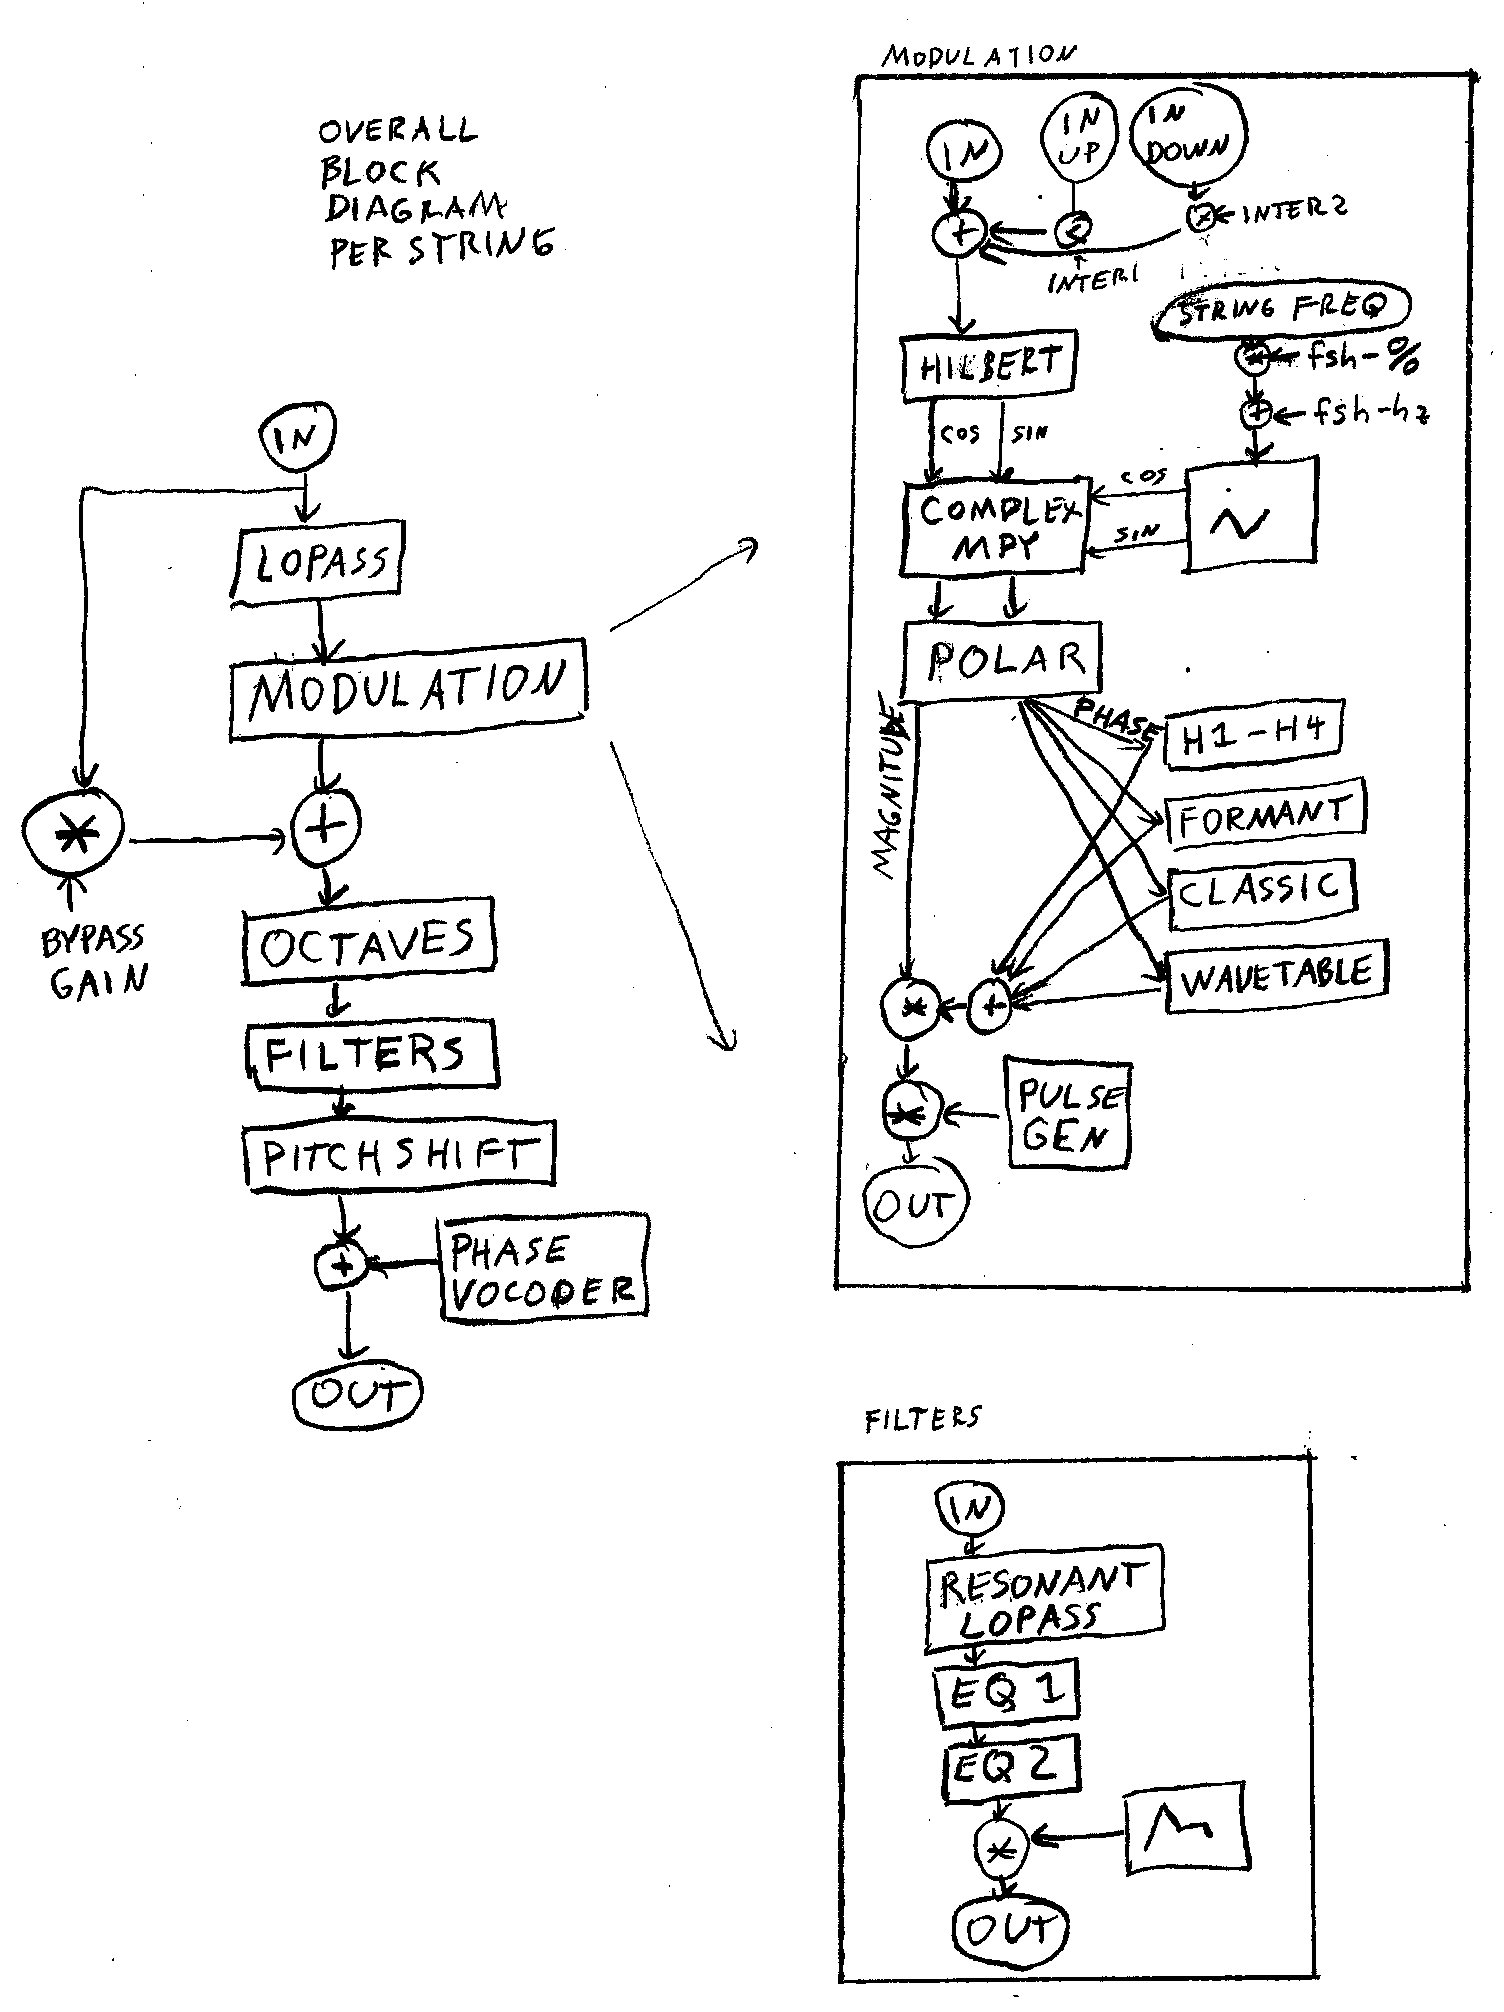 OVERALL
BLOCK
DIAGRAM
PER STRING
IN
LOPASS
MODULATION
*
+
BYPASS
GAIN
OCTAVES
FILTERS
PITCHSHIFT
+
PHASE
VOCODER
OUT
MODULATION
IN
IN
UP
IN
DOWN
+
INTER2
INTER1
STRING FREQ
HILBERT
* fsh-%
+ fsh-hz
COS
SIN
COMPLEX
MPY
COS
SIN
POLAR
MAGNITUDE
PHASE
H1-H4
FORMANT
CLASSIC
WAVETABLE
*
+
*
PULSE
GEN
OUT
FILTERS
IN
RESONANT
LOPASS
EQ 1
EQ 2
*
OUT